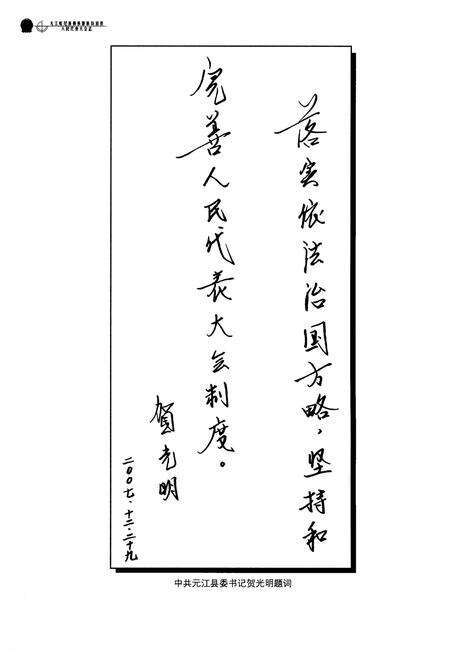 人民代表大会志
落实依法治国方略，坚持和
完善人民代表大会制度。
贺光明
二〇〇七·十二·二十九
中共元江县委书记贺光明题词